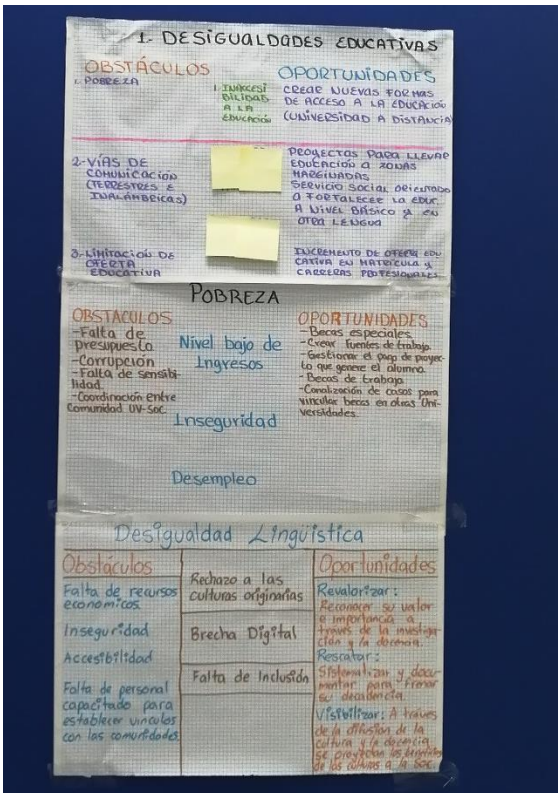 1.- DESIGUALDADES EDUCATIVAS
OBSTÁCULOS
1. POBREZA
1. INACCESI
BILIDAD
A LA
EDUCACIÓN
OPORTUNIDADES
CREAR NUEVAS FORMAS
DE ACCESO A LA EDUCACIÓN
(UNIVERSIDAD A DISTANCIA)
2-VÍAS DE
COMUNICACIÓN
(TERRESTRES E
INALÁMBRICAS)
PROYECTOS PARA LLEVAR
EDUCACIÓN A ZONAS
MARGINADAS
SERVICIO SOCIAL ORIENTADO
A FORTALECER LA EDUC.
A NIVEL BÁSICO Y EN
OTRA LENGUA
3.-LIMITACIÓN DE
OFERTA
EDUCATIVA
INCREMENTO DE OFERTA EDU
CATIVA EN MATRÍCULA Y
CARRERAS PROFESIONALES
POBREZA
OBSTACULOS
-Falta de
presupuesto
-Corrupción
-Falta de sensibi
lidad.
-Coordinación entre
Comunidad UV-Soc.
Nivel bajo de
Ingresos
Inseguridad
Desempleo
OPORTUNIDADES
-Becas especiales
-Crear fuentes de trabajo.
-Gestionar el pago de proyec-
to que genere el alumno.
-Becas de trabajo
-Canalización de casos para
vincular becas en otras Uni-
versidades.
Desigualdad Lingüística
Obstáculos
Falta de recursos
económicos
Inseguridad
Accesibilidad
Falta de personal
capacitado para
establecer vínculos
con las comunidades
Rechazo a las
culturas originarias
Brecha Digital
Falta de Inclusión
Oportunidades
Revalorizar:
Reconocer su valor
e importancia a
través de la investiga-
ción y la docencia.
Rescatar:
Sistematizar y docu-
mentar para frenar
su decadencia.
Visibilizar: A través
de la difusión de la
cultura y la docencia
se proyectan los beneficios
de las culturas a la soc.